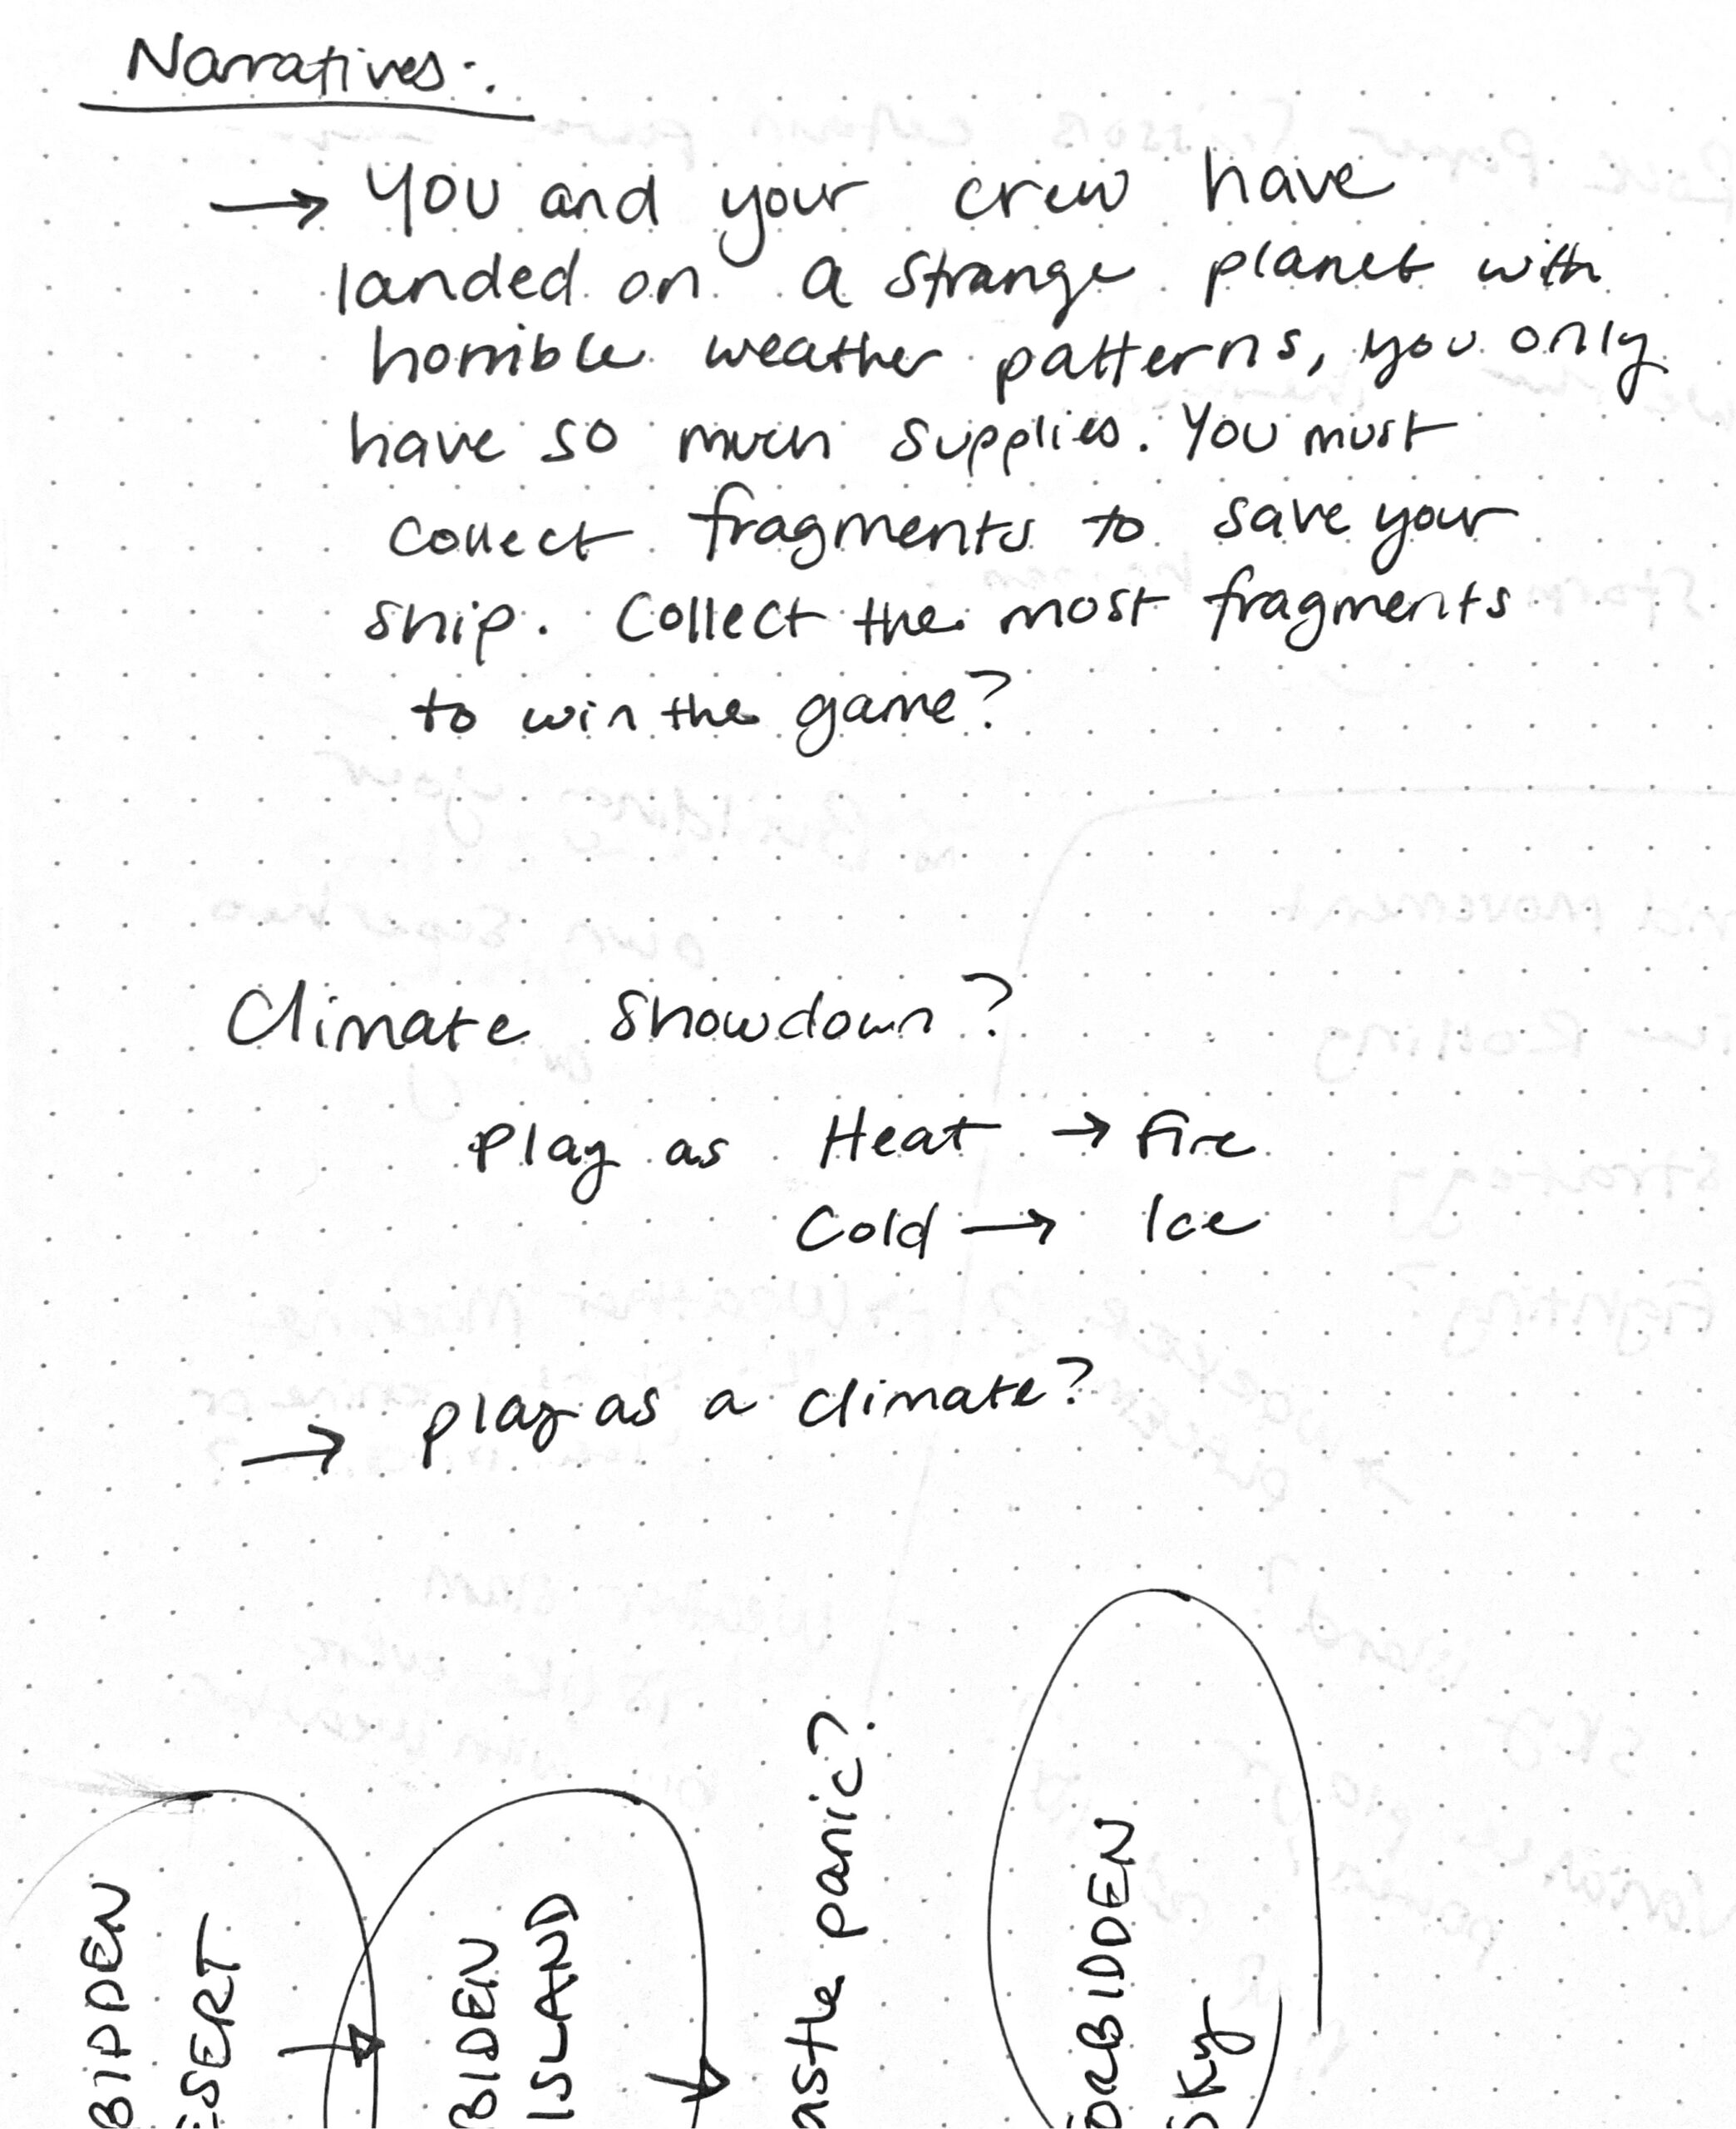 Narratives:
→ You and your crew have
landed on a strange planet with
horrible weather patterns, you only
have so much supplies. You must
collect fragments to save your
ship. Collect the most fragments
to win the game?
Climate Showdown?
Play as Heat → Fire
Cold → Ice
→ play as a climate?
BIDDEN
ESERT
BIDEN
ISLAND
astle panic?
ORBIDDEN
Sky